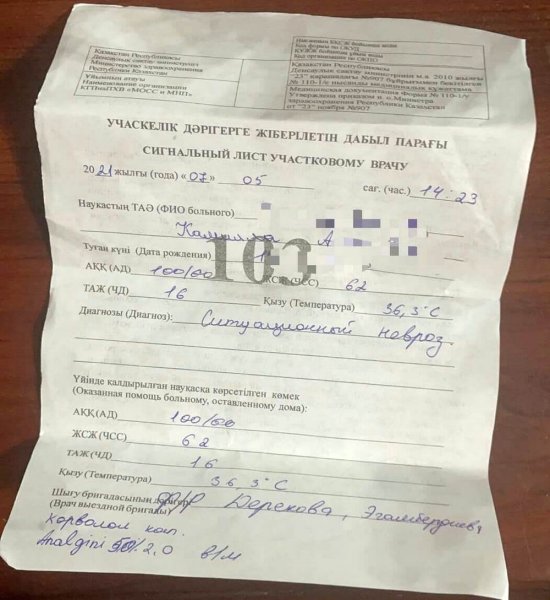 Қазақстан Республикасы
Денсаулық сақтау министрлігі
Министерство здравоохранения
Республики Казахстан
Ұйымның атауы
Наименование организации
КГПнаПХВ «МОСС и МТП»
Нысанның БҚСЖ бойынша коды
Код формы по ОКУД
КҰЖЖ бойынша ұйым коды
Код организации по ОКПО
Қазақстан Республикасы
Денсаулық сақтау министрінің м.а. 2010 жылғы
"23" қарашадағы №907 бұйрығымен бекітілген
№ 110-1/е нысанды медициналық құжаттама
Медицинская документация Форма № 110-1/у
Утверждена приказом и.о. Министра
здравоохранения Республики Казахстан
от "23" ноября №907
УЧАСКЕЛІК ДӘРІГЕРГЕ ЖІБЕРІЛЕТІН ДАБЫЛ ПАРАҒЫ
СИГНАЛЬНЫЙ ЛИСТ УЧАСТКОВОМУ ВРАЧУ
2021 жылғы (года) «07» 05 сағ. (час.) 14:23
Наукастың ТАӘ (ФИО больного)
А
103
Туған күні (Дата рождения) 1
АҚҚ (АД) 100/60 ЖСЖ (ЧСС) 62
ТАЖ (ЧД) 16 Қызу (Температура) 36,3°С
Диагнозы (Диагноз): Ситуационный невроз.
Үйінде қалдырылған науқасқа көрсетілген көмек
(Оказанная помощь больному, оставленному дома):
АҚҚ (АД) 100/60
ЖСЖ (ЧСС) 62
ТАЖ (ЧД) 16
Қызу (Температура) 36,3°С
Шығу бригадасының дәрігері
(Врач выездной бригады) Дерекова,
корволол кап.
Analgini 50% 2,0 в/м